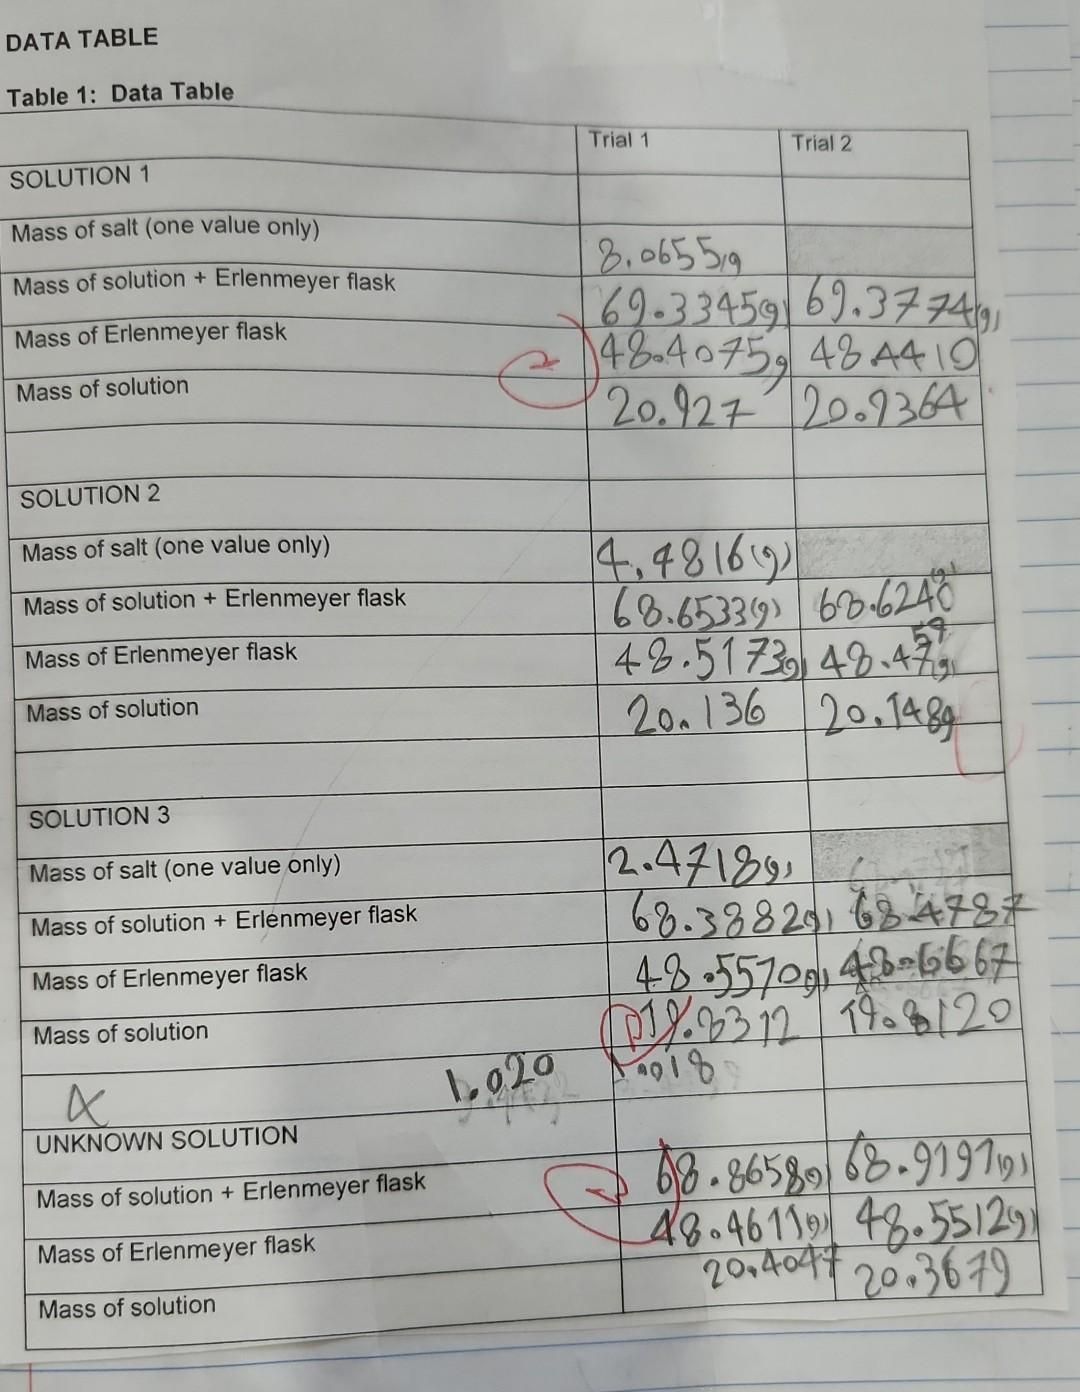 DATA TABLE
Table 1: Data Table
Trial 1 Trial 2
SOLUTION 1
Mass of salt (one value only) 8.0655g
Mass of solution + Erlenmeyer flask 69.3345(g) 69.3774(g)
Mass of Erlenmeyer flask 48.4075g 48.4410
Mass of solution 20.927 20.9364
SOLUTION 2
Mass of salt (one value only) 4.4816(g)
Mass of solution + Erlenmeyer flask 68.6533(g) 68.6240
Mass of Erlenmeyer flask 48.5173g
Mass of solution 20.136 20.148g
SOLUTION 3
Mass of salt (one value only) 2.4718g
Mass of solution + Erlenmeyer flask 68.3882g 68.4787
Mass of Erlenmeyer flask 48.5570g 48.6667
Mass of solution 19.8312 19.8120
1.020 1.018
UNKNOWN SOLUTION
Mass of solution + Erlenmeyer flask 68.8658g 68.9191(g)
Mass of Erlenmeyer flask 48.4611(g) 48.5512(g)
Mass of solution 20.4047 20.3679